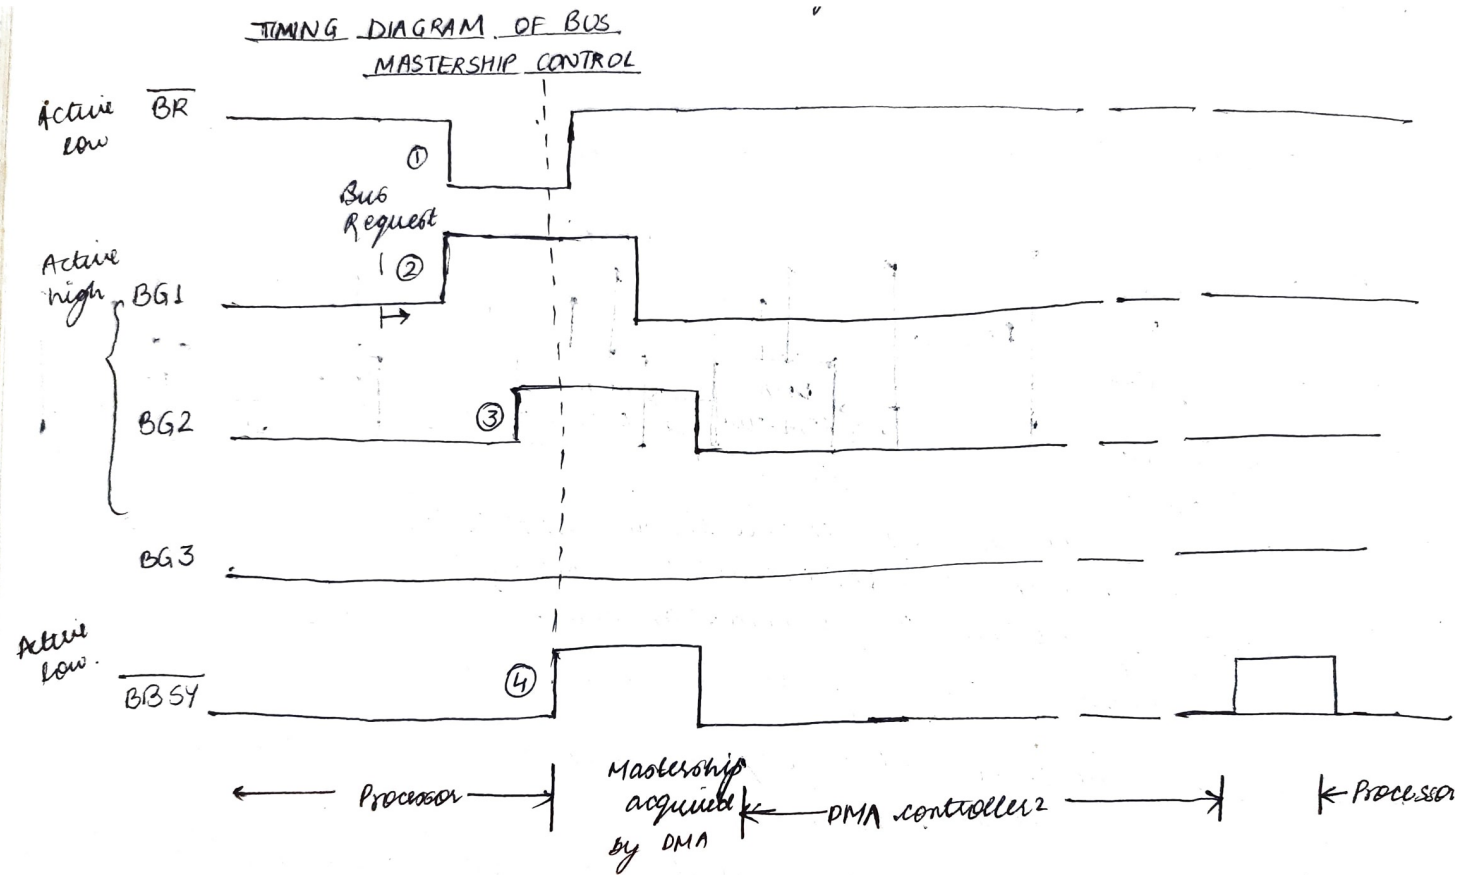 TIMING DIAGRAM OF BUS
MASTERSHIP CONTROL
Active
low
BR
①
Bus
Request
Active
high
②
BG1
③
BG2
BG3
Active
low.
④
BBSY
Processor
Mastership
acquired
by DMA
DMA controller 2
Processor